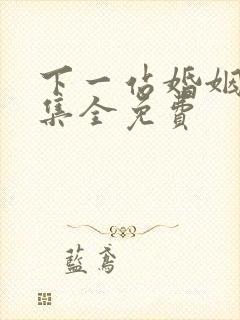 下一站婚姻
集全免费
藍鳶